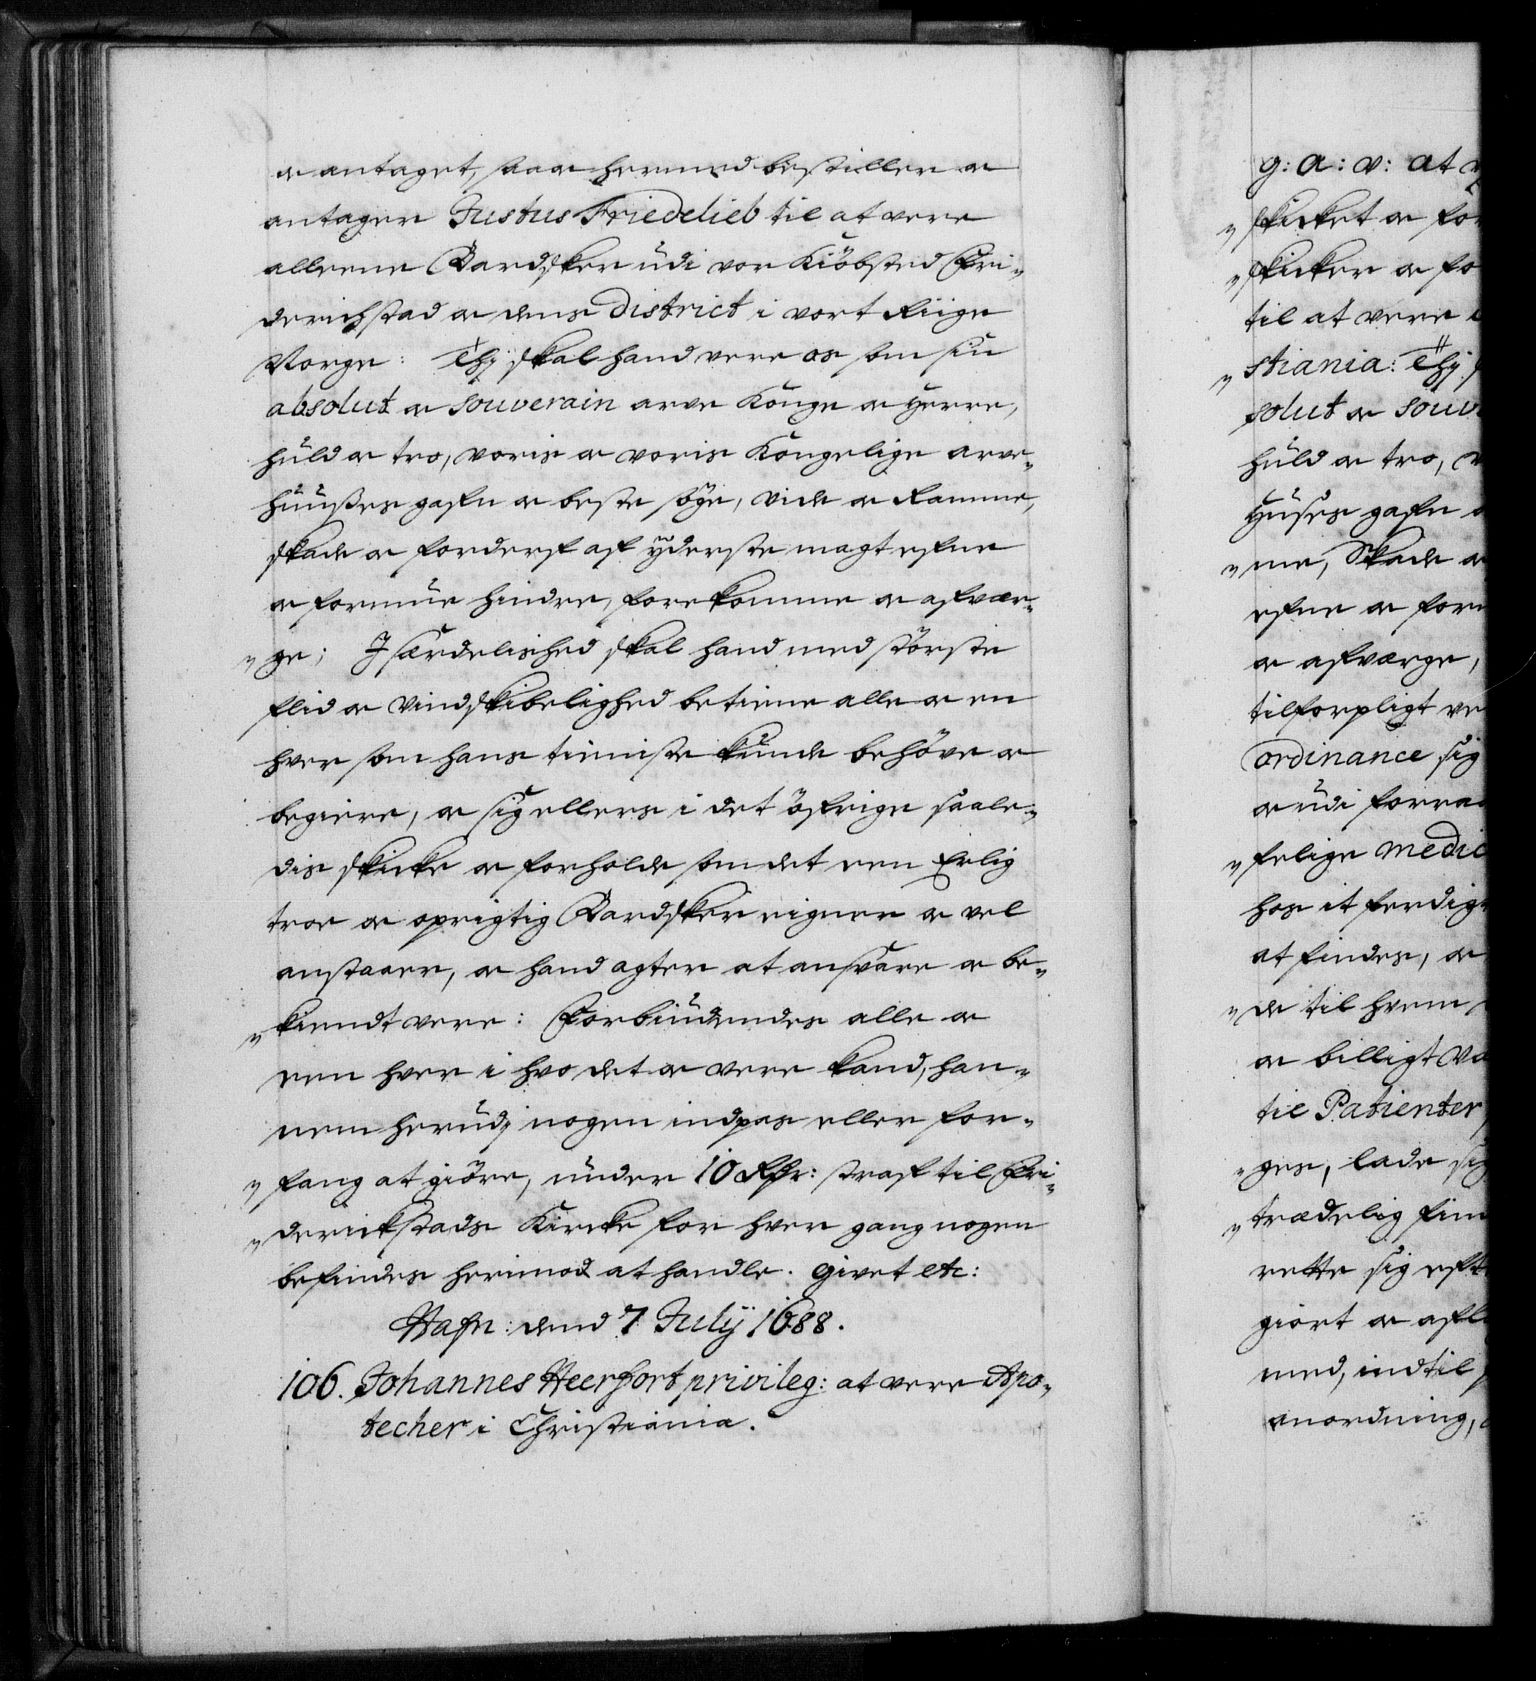 oc antaget, saa oc hermed bestiller oc
antager Justus Friedelieb til at vere
alleene Bardsker udi vor Kiöbsted Fri-
derichstad oc dens District i vort Riige
Norge: Thj skal hand vere os som sin
absolut oc souverain arve Konge oc Herre,
huld oc tro, voris oc voris Kongelige arve-
huusses gafn oc beste söge, vide oc ramme,
skade oc forderf af yderste magt efne
oc formue hindre, forekomme oc afvær-
"ge; J særdelished skal hand med störste
flid oc vindskibelighed betiene alle oc en
hver som hans tieniste kunde behöve oc
begiere, oc sig ellers i det öfrige saale-
dis skicke oc forholde som det een Erlig
troe oc oprigtig Bardsker eigner oc vel
anstaaer, oc hand agter at ansvare oc be-
"kiendt vere: Forbiudendes alle oc
een hver i hvo det oc vere kand, han-
nem herudj nogen indpas eller for-
"fang at giöre, under 10 Rdr: straf til Fri-
"derichstads Kircke for hver gang nogen
befindes herimod at handle. Givet etc:
Hafn: dend 7 Julij 1688.
106. Johannes Heerfort privileg: at vere Apo-
techer i Christiania.
g: a: v: at
"skicket oc for
"skicker oc fo
til at vere
"stiania: Thj
solut oc souv
huld oc tro,
Huses gafn
"me, Skade oc
efne oc for
oc afværge,
tilforpligt ve
ordinance sig
oc udi forraa
"felige medic
hos it ferdig
at findes, oc
"de til hvem
oc billigt va
til Patienter
"ges, lade sig
"trædelig fin
rette sig eft
giort oc afl
med, indtil
anordning,